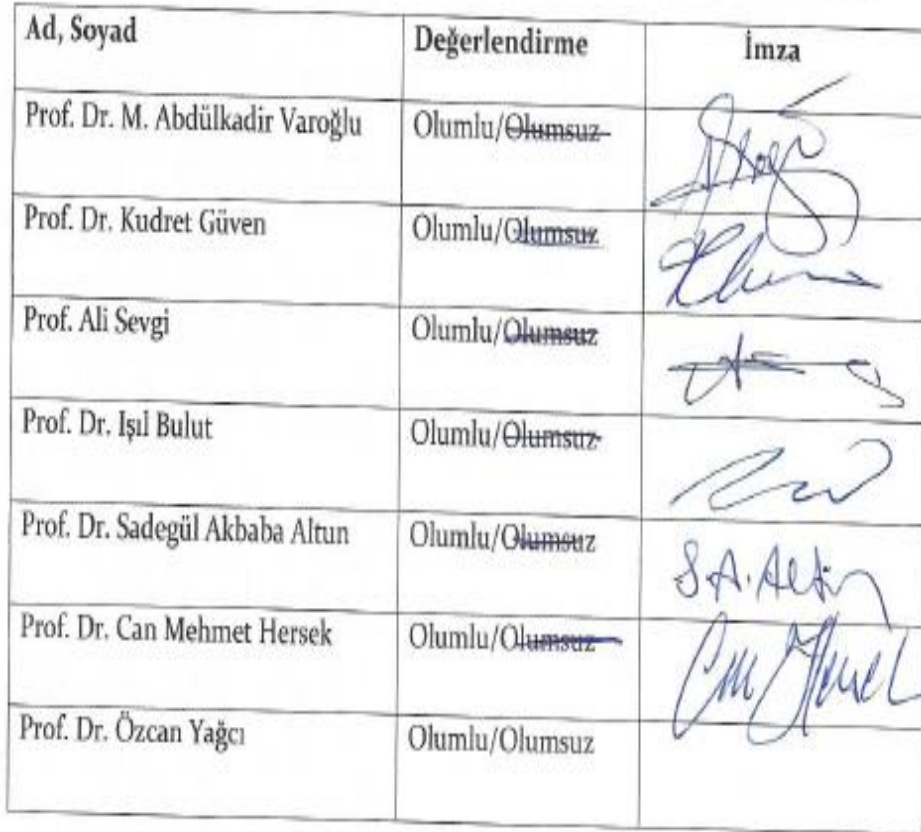 Ad, Soyad Değerlendirme İmza
Prof. Dr. M. Abdülkadir Varoğlu Olumlu/Olumsuz
Prof. Dr. Kudret Güven Olumlu/Olumsuz
Prof. Ali Sevgi Olumlu/Olumsuz
Prof. Dr. Işıl Bulut Olumlu/Olumsuz
Prof. Dr. Sadegül Akbaba Altun Olumlu/Olumsuz S.A. Altun
Prof. Dr. Can Mehmet Hersek Olumlu/Olumsuz Can Hersek
Prof. Dr. Özcan Yağcı Olumlu/Olumsuz